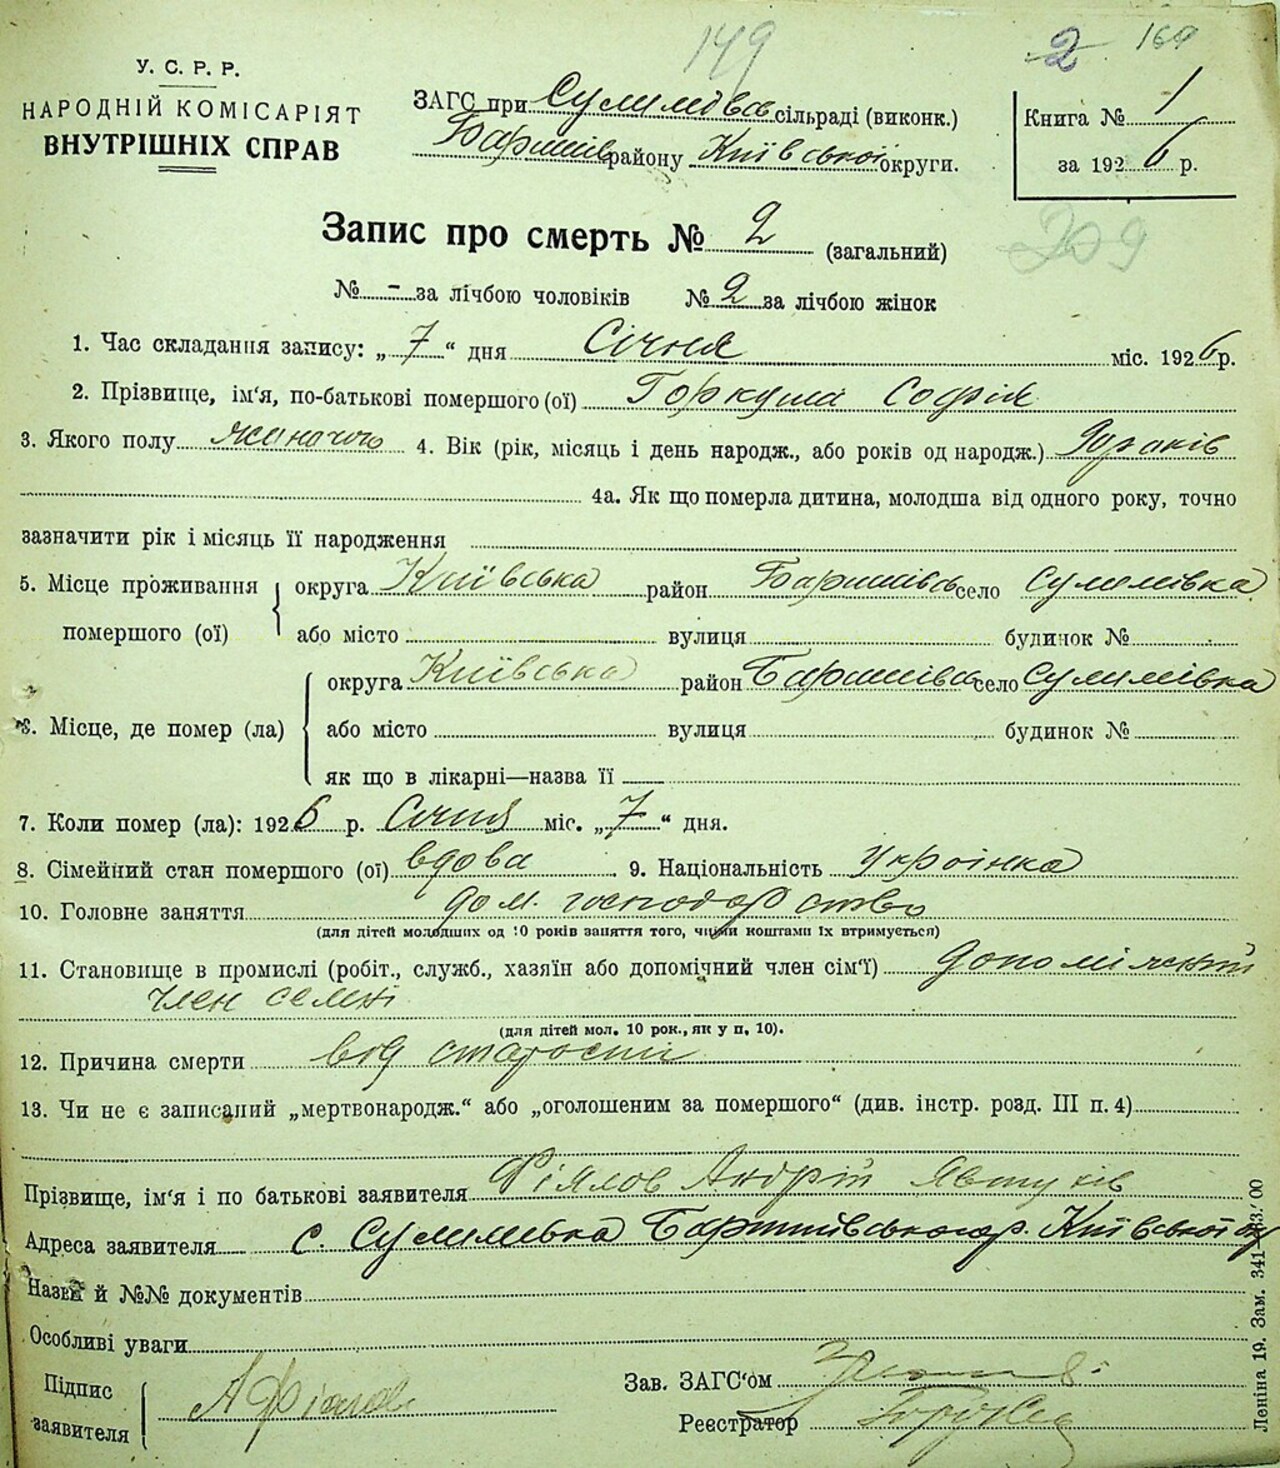 149
2 169
У. С. Р. Р.
НАРОДНІЙ КОМІСАРІЯТ
ВНУТРІШНІХ СПРАВ
ЗАГС при Сулимівс сільраді (виконк.)
Баришів району Київської округи.
Книга № 1
за 1926 р.
209
Запис про смерть № 2 (загальний)
№ - за лічбою чоловіків № 2 за лічбою жінок
1. Час складання запису: „7“ дня Січня міс. 1926 р.
2. Прізвище, ім‘я, по-батькові помершого (ої) Горкуша Софія
3. Якого полу жиночого 4. Вік (рік, місяць і день народж., або років од народж.) років
4а. Як що померла дитина, молодша від одного року, точно
зазначити рік і місяць її народження
5. Місце проживання помершого (ої) округа Київська район Баришівсь село Сулимівка
або місто вулиця будинок №
6. Місце, де помер (ла) округа Київська район Баришівсь село Сулимівка
або місто вулиця будинок №
як що в лікарні—назва її
7. Коли помер (ла): 1926 р. Січня міс. „7“ дня.
8. Сімейний стан помершого (ої) вдова 9. Національність Украінка
10. Головне заняття дом. господарство
(для дітей молодших од 10 років заняття того, чиїми коштами їх втримується)
11. Становище в промислі (робіт., служб., хазяїн або допомічний член сім‘ї) допоміжний
член семні
(для дітей мол. 10 рок., як у п. 10).
12. Причина смерти від старости
13. Чи не є записаний „мертвонародж.“ або „оголошеним за помершого“ (див. інстр. розд. III п. 4)
Прізвище, ім‘я і по батькові заявителя Фіялов Андрій Явтухів
Адреса заявителя с. Сулимівка Баришівського р. Київської ок
Назви й №№ документів
Особливі уваги
Підпис заявителя А Фіалов
Зав. ЗАГС‘ом
Реєстратор
Леніна 19. Зам. 341